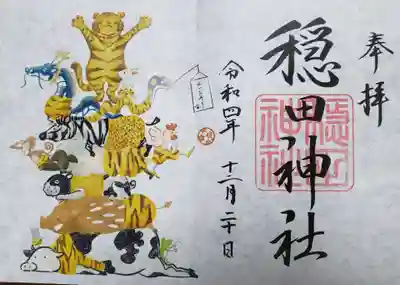 奉拝
穏田神社
穏田
神社
令和四年 十二月二十日